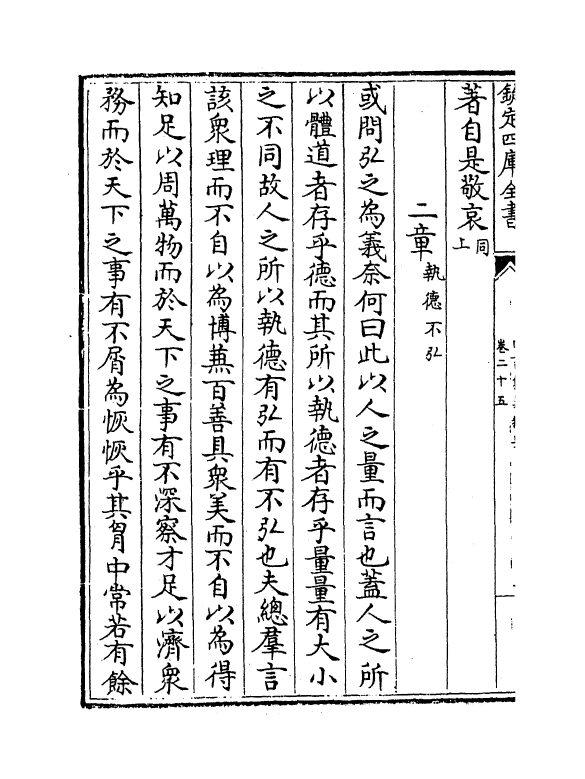 欽定四庫全書
卷二十五
著自是敬哀同上
二章執德不弘
或問弘之為義奈何曰此以人之量而言也蓋人之所
以體道者存乎德而其所以執德者存乎量量有大小
之不同故人之所以執德有弘而有不弘也夫總羣言
該衆理而不自以為博蕪百善具衆美而不自以為得
知足以周萬物而於天下之事有不深察才足以濟衆
務而於天下之事有不屑為恢恢乎其胷中常若有餘